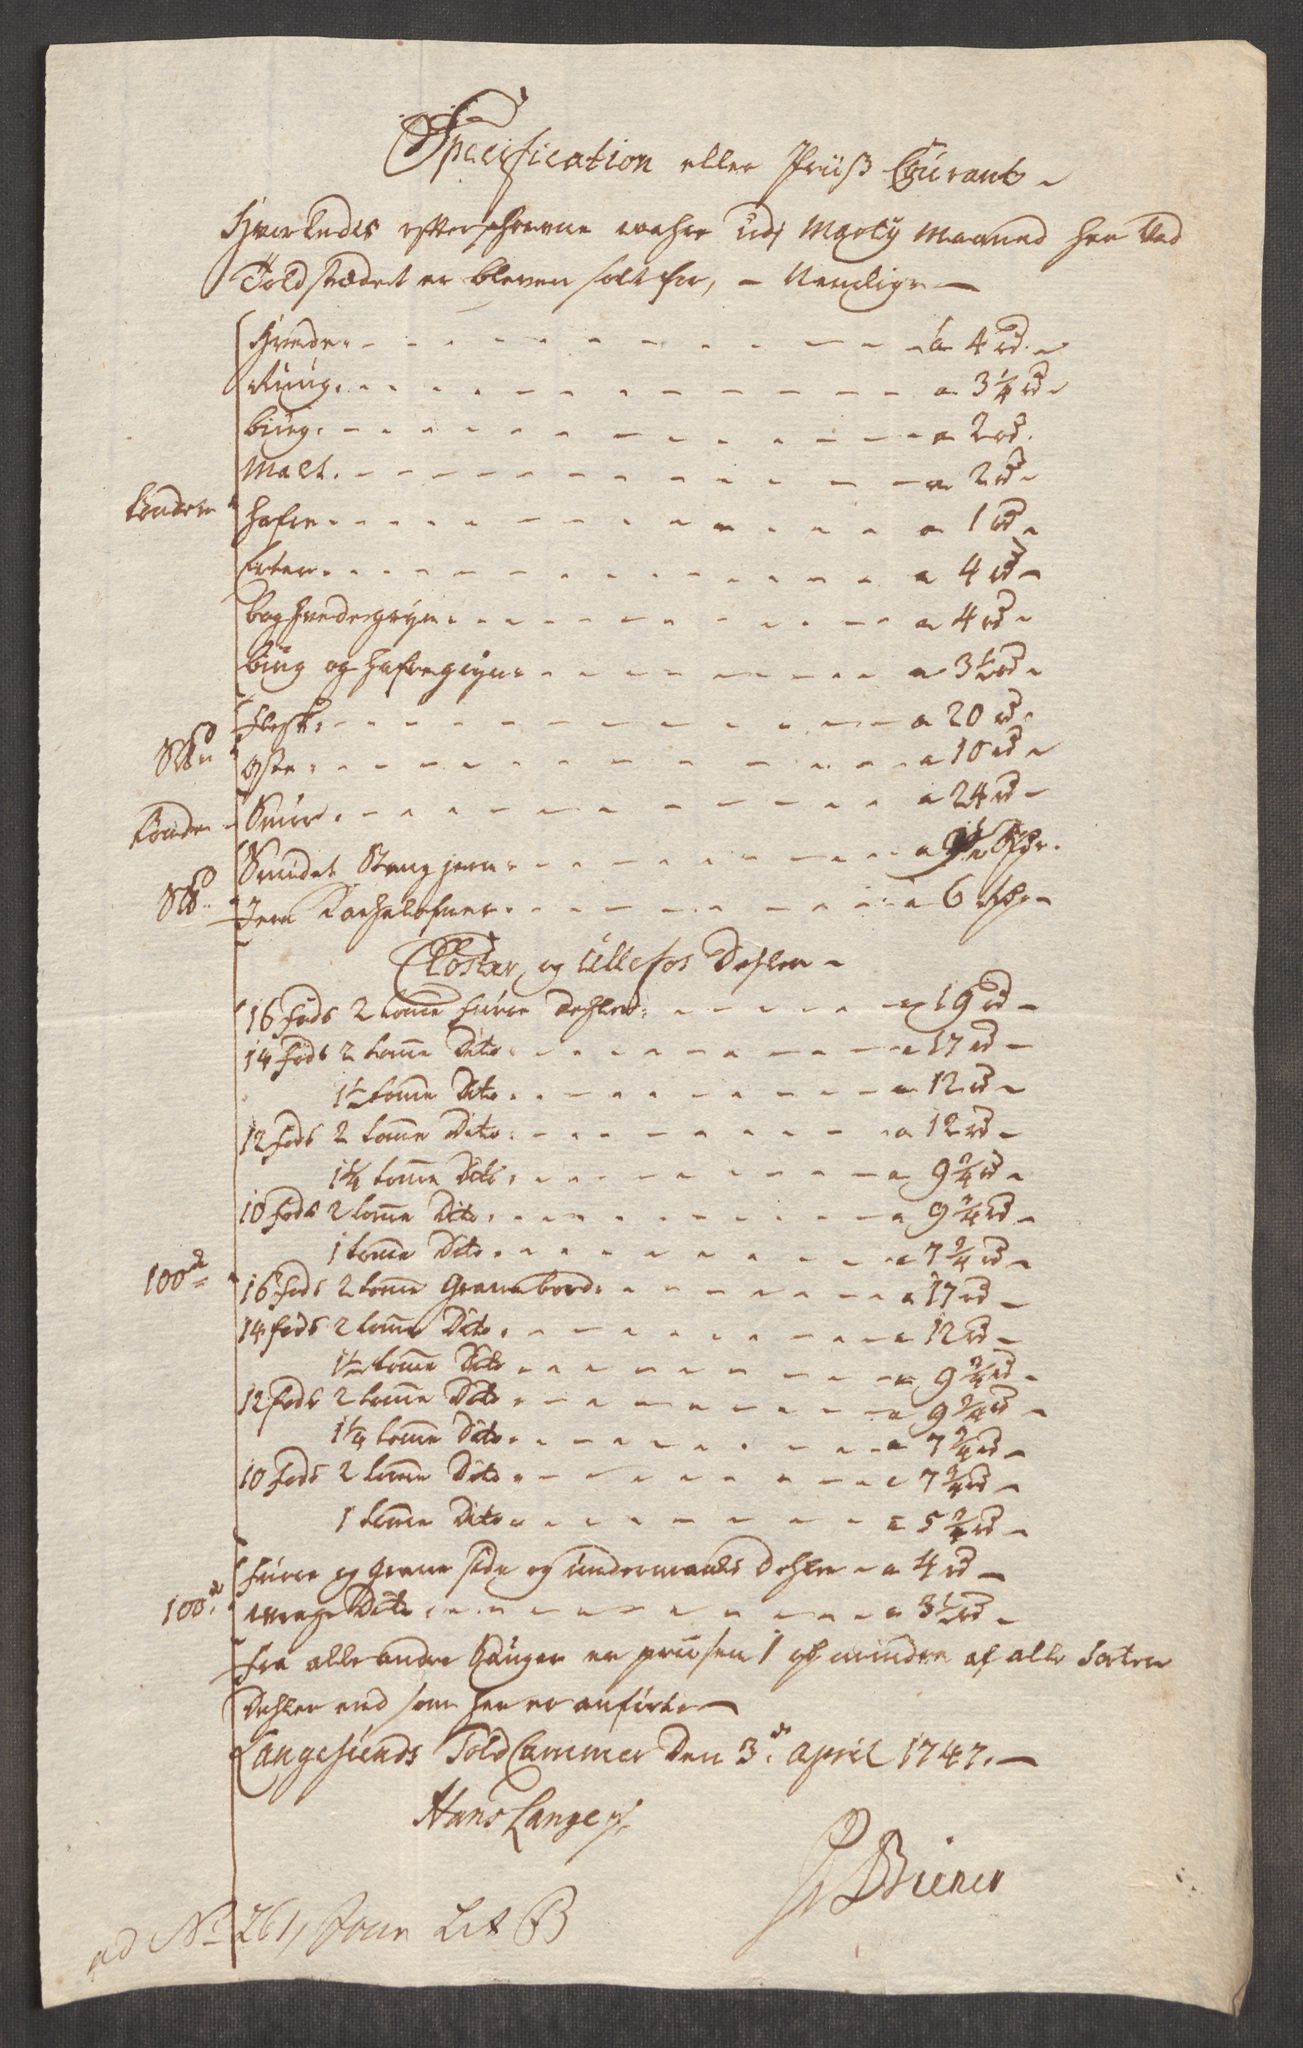 Specification eller Priis Courant
Hvorledes efterschrevne wahre udj Marty Maaned her ved
Toldstædet er bleven solt for, - Nemlig
Hvede - a 4 rd
Rüug - a 3 1/4 rd
büug - a 2 rd
Malt - a 2 rd
tønden hafre - a 1 rd
Erter - a 4 rd
boghvedegryn - a 4 rd
büug og hafregryn - a 3 1/2 rd
flesk - a 20 rd
SkPd oste - a 10 rd
tønden Smør - a 24 rd
Smidet Stang jern - a
SkPd Jern Kachelofner - a 6
Closter og Ullefos Dehler
16 fods 2 tome furre Dehler - a 19 rd
14 fods 2 tome Dito - a 17 rd
1 1/2 tome Dito - a 12 rd
12 fods 2 tome Dito - a 12 rd
1 1/4 tome Dito - a 9 3/4 rd
10 fods 2 tome Dito - a 9 3/4 rd
1 tome Dito - a 7 3/4 rd
100de 16 fods 2 tome Granebord - a 17 rd
14 fods 2 tome Dito - a 12 rd
1 1/2 tome Dito - a 9 3/4 rd
12 fods 2 tome Dito - a 9 3/4 rd
1 1/4 tome Dito - a 7 3/4 rd
10 fods 2 tome Dito - a 7 3/4 rd
1 tome Dito - a 5 3/4 rd
furre og grane side og undermaals Dehler - a 4 rd
100de wrage Dito - a 3 1/2 rd
fra alle andre Sauger er priisen 1 mindre af alle Sorter
Dehler end som her er anført
Langesunds ToldCammer Den 3de April 1747.
Hans Lange
Biener
ad No 261, Lit B